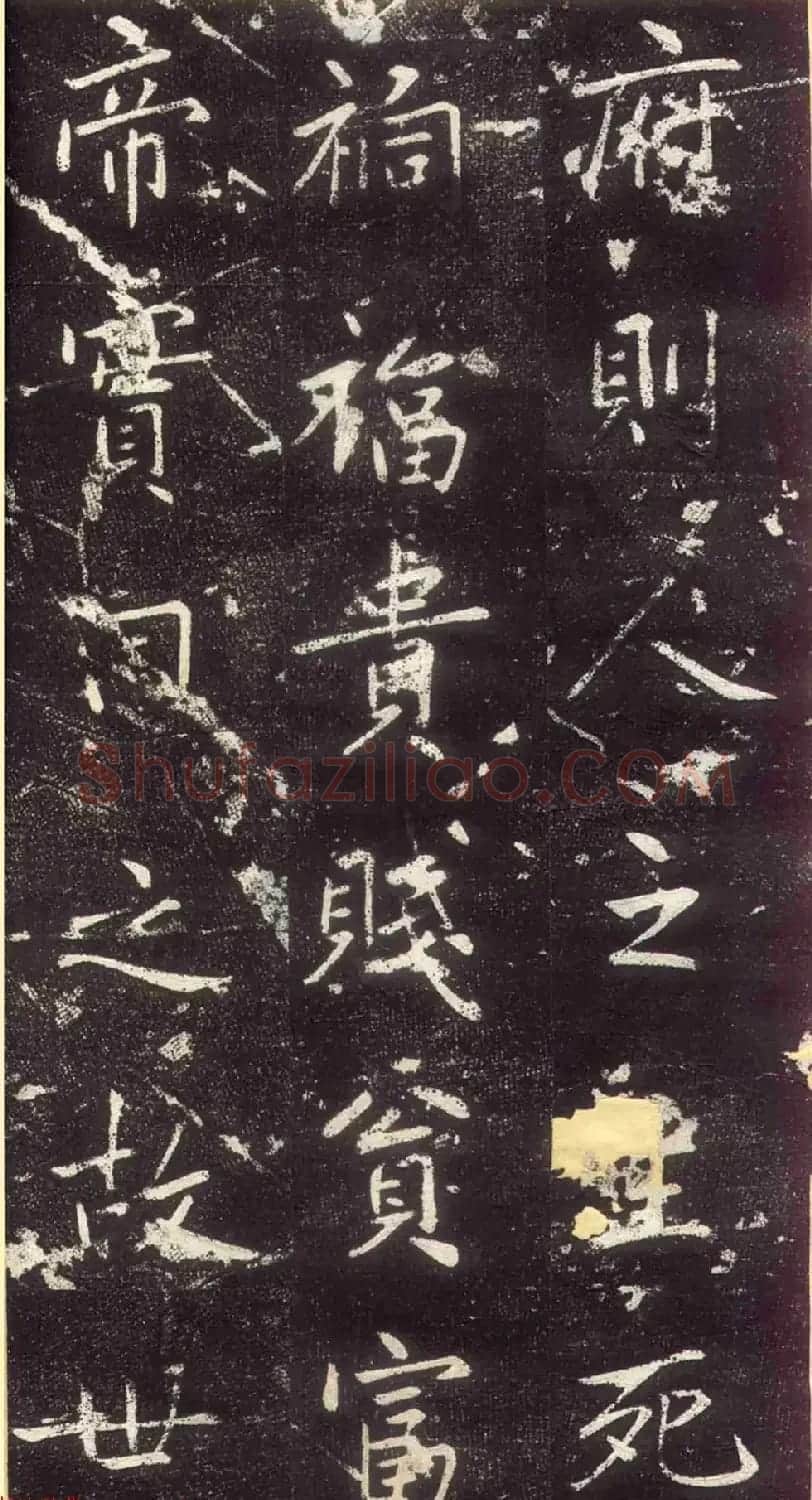 則人之生死
禍福貴賤貧富
帝實司之故世
Shufaziliao.COM